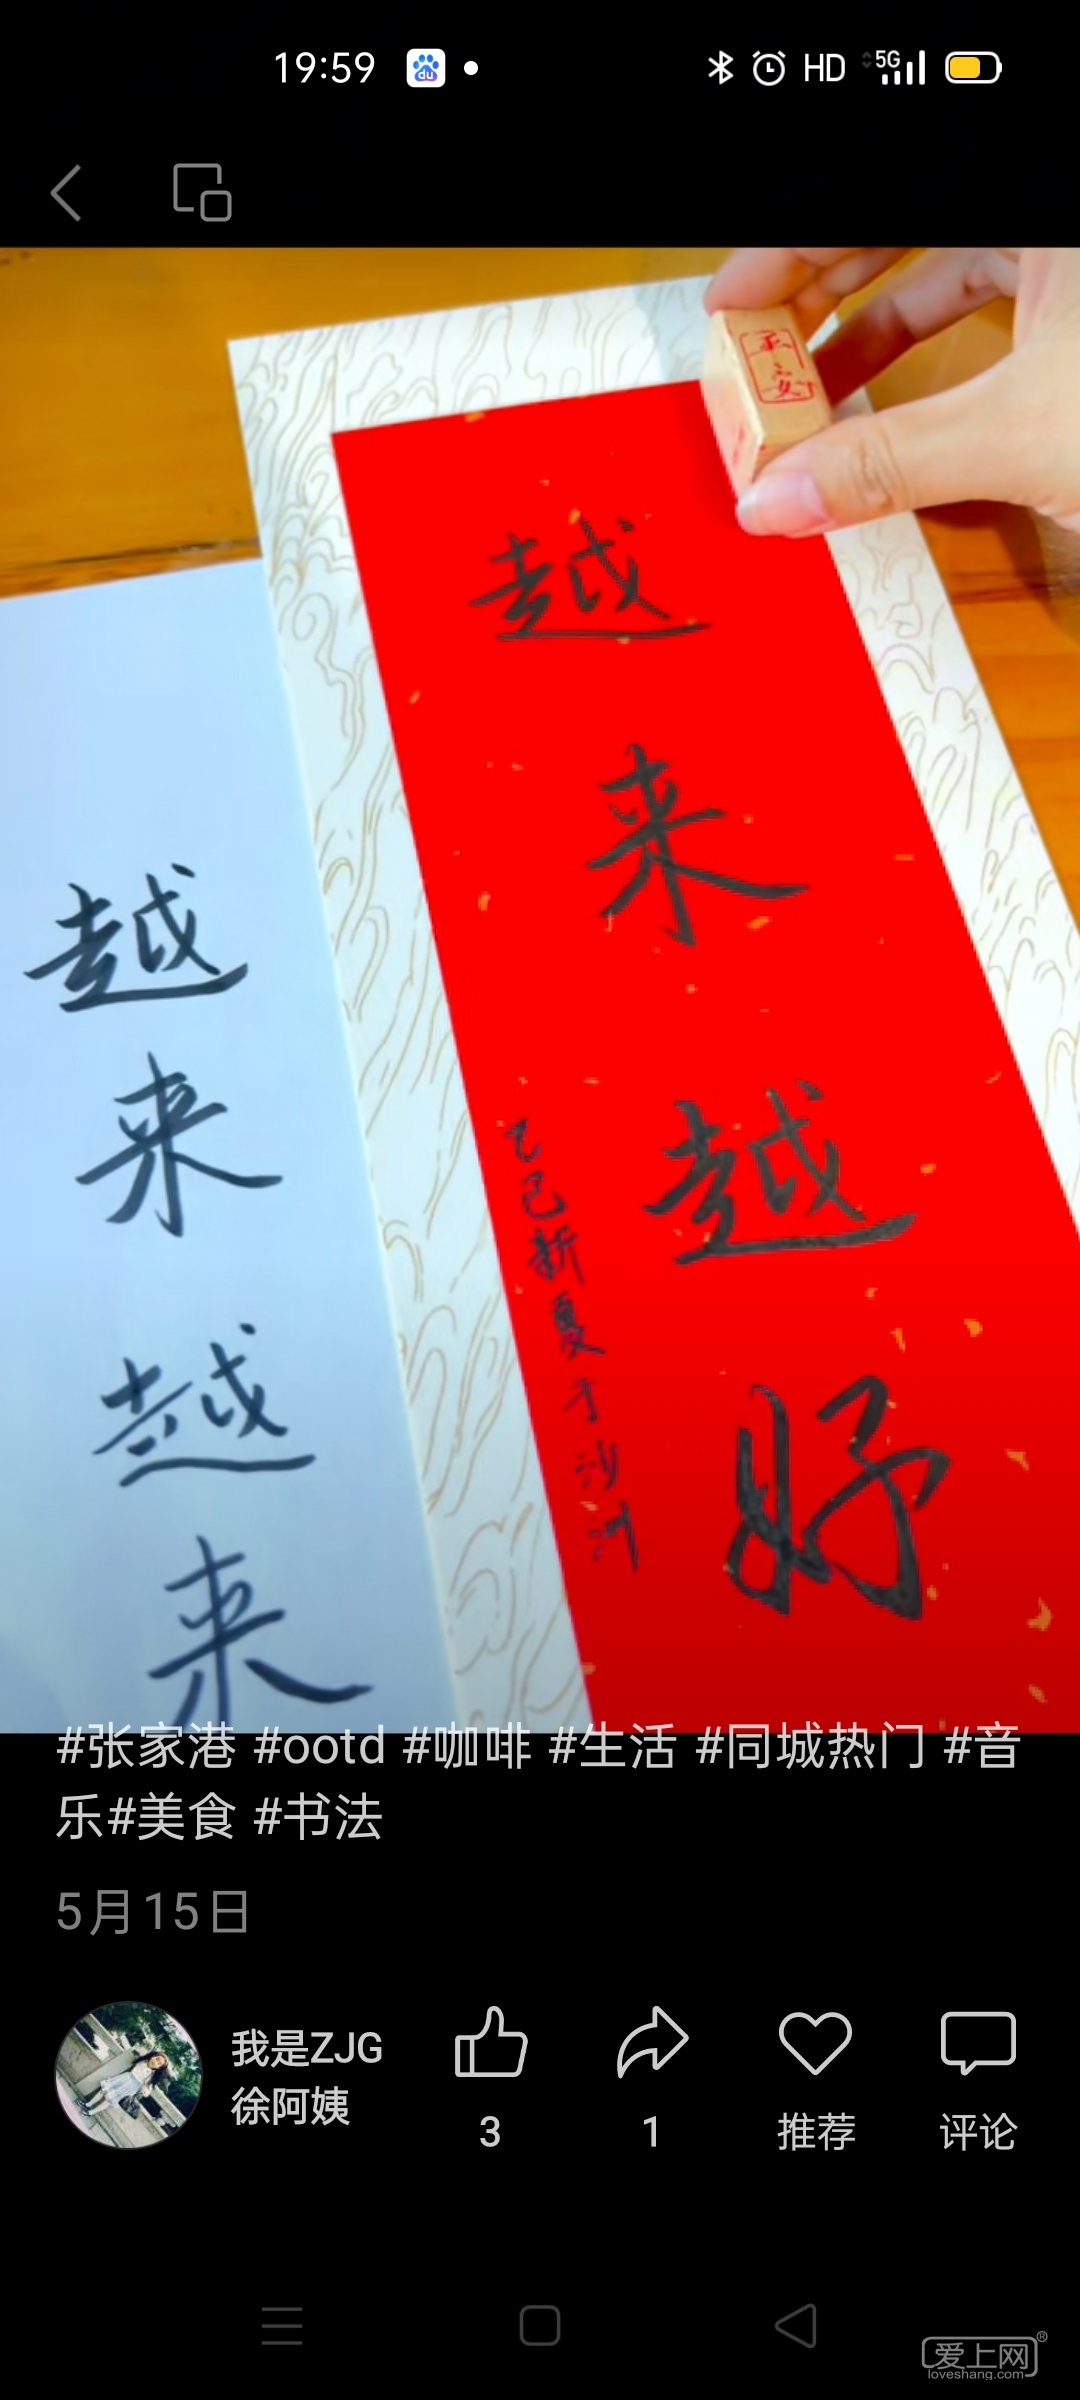 19:59
du
HD
5G
越来越好
乙巳新夏于沙洲
越来越来
#张家港 #ootd #咖啡 #生活 #同城热门 #音
乐#美食 #书法
5月15日
我是ZJG
徐阿姨
3
1
推荐
评论
爱上网®
loveshang.com